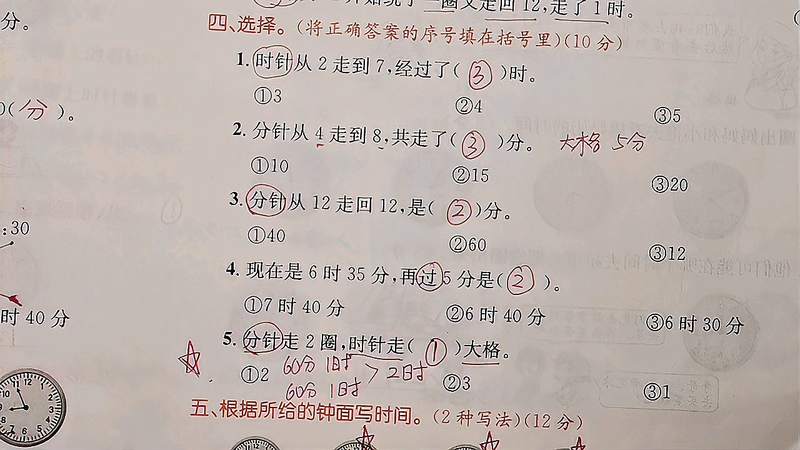 开始绕了一圈又走回12,走了1时。
分。
四、选择。(将正确答案的序号填在括号里)(10分)
1. 时针从2走到7,经过了( ③ )时。
①3 ②4 ③5
0(分)。
2. 分针从4走到8,共走了( ③ )分。 大格 5分
①10 ②15 ③20
3. 分针从12走回12,是( ② )分。
①40 ②60 ③12
:30
4. 现在是6时35分,再过5分是( ② )。
①7时40分 ②6时40分 ③6时30分
时40分
5. 分针走2圈,时针走( ① )大格。
60分 1时 > 2时
60分 1时
①2 ②3 ③1
五、根据所给的钟面写时间。(2种写法)(12分)